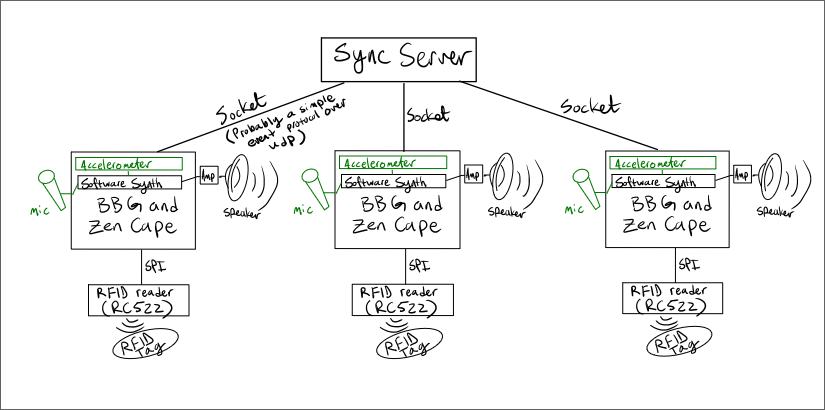 Sync Server
Socket
(Probably a simple
event protocol over
udp)
Socket
Socket
Accelerometer
Software Synth
BBG and
Zen Cape
Mic
Amp
Speaker
SPI
RFID reader
(RC522)
RFID
Tag
Accelerometer
Software Synth
BBG and
Zen Cape
Mic
Amp
Speaker
SPI
RFID reader
(RC522)
RFID
Tag
Accelerometer
Software Synth
BBG and
Zen Cape
Mic
Amp
Speaker
SPI
RFID reader
(RC522)
RFID
Tag